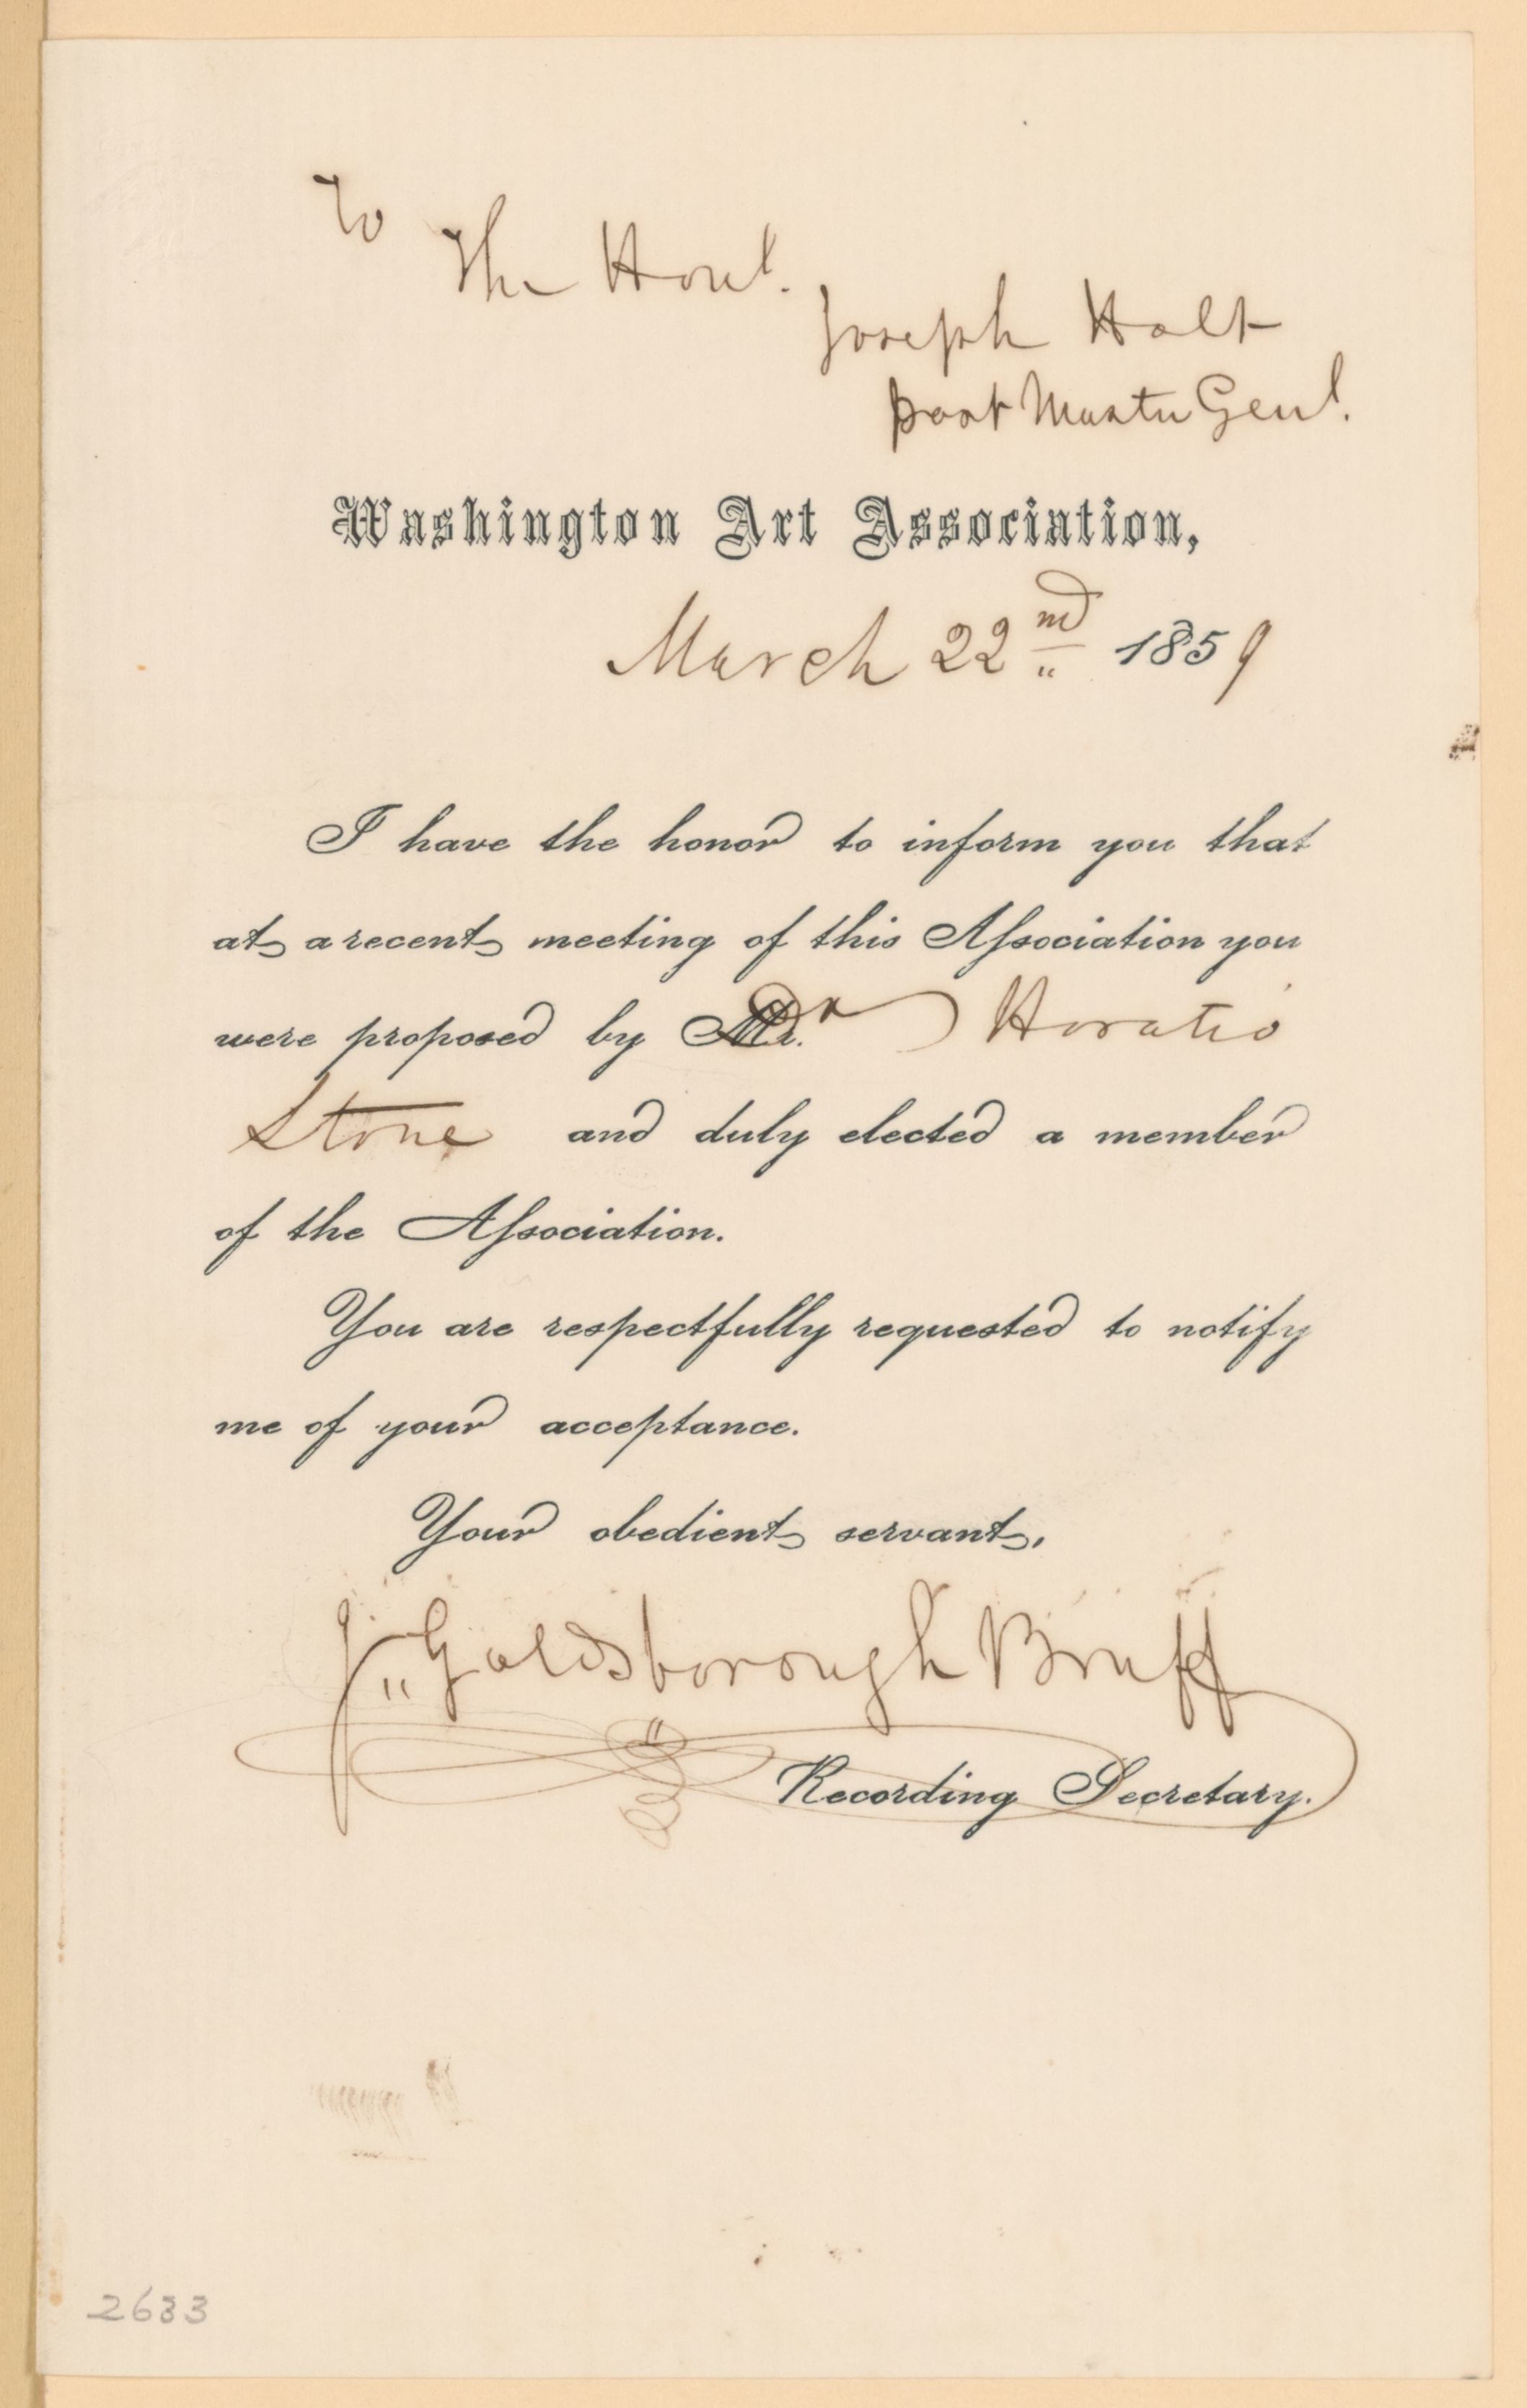 To
The Honl.
Joseph Holt
Post Master Genl.
Washington Art Association,
March 22nd 1859
I have the honor to inform you that
at a recent meeting of this Aſsociation you
were proposed by Dr Horatio
Stone and duly elected a member
of the Aſsociation.
You are respectfully requested to notify
me of your acceptance.
Your obedient servant,
J. Goldsborough Bruff
Recording Secretary.
2633